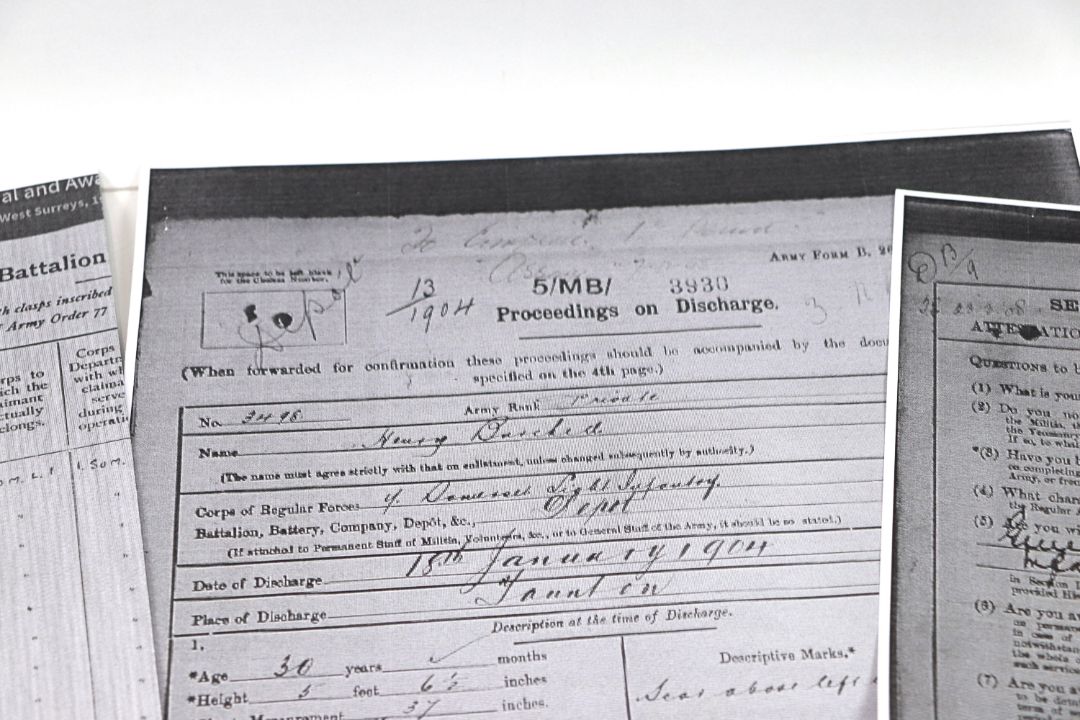 al and Awa
West Surreys, 1
Battalion
h clasps inscribed
Army Order 77
rps to
ich the
aimant
ctually
elongs.
Corps
Departm
with wh
claima
serve
during
operati
M. L. I.
1. Som.
To
This space to be left blank
for the Chelsea Number.
Depot
13
1904
5/MB/ 3930
Army Form B.
Proceedings on Discharge.
(When forwarded for confirmation these proceedings should be accompanied by the docu
specified on the 4th page.)
No. 3498 Army Rank Private
Name Henry
(The name must agree strictly with that on enlistment, unless changed subsequently by authority.)
Corps of Regular Forces Somerset Light Infantry
Battalion, Battery, Company, Depôt, &c., Depot
(If attached to Permanent Staff of Militia, Volunteers, &c., or to General Staff of the Army, it should be so stated.)
Date of Discharge 18th January 1904
Place of Discharge Taunton
Description at the time of Discharge.
1.
*Age 30 years months
*Height 5 feet 6½ inches
Measurement 37 inches.
Descriptive Marks.*
Scar above left
B/9
SE
ATTESTATIO
Questions to b
(1) What is your
(2) Do you no
the Militia, th
the Yeomanry
If so, to what
*(3) Have you b
on completing
Army, or from
(4) What char
the Regular A
(5) Are you wi
in Section 1
provided His
(6) Are you aw
as permanen
in case of
notwithstan
the whole o
such service
(7) Are you a
to be deta
term of s